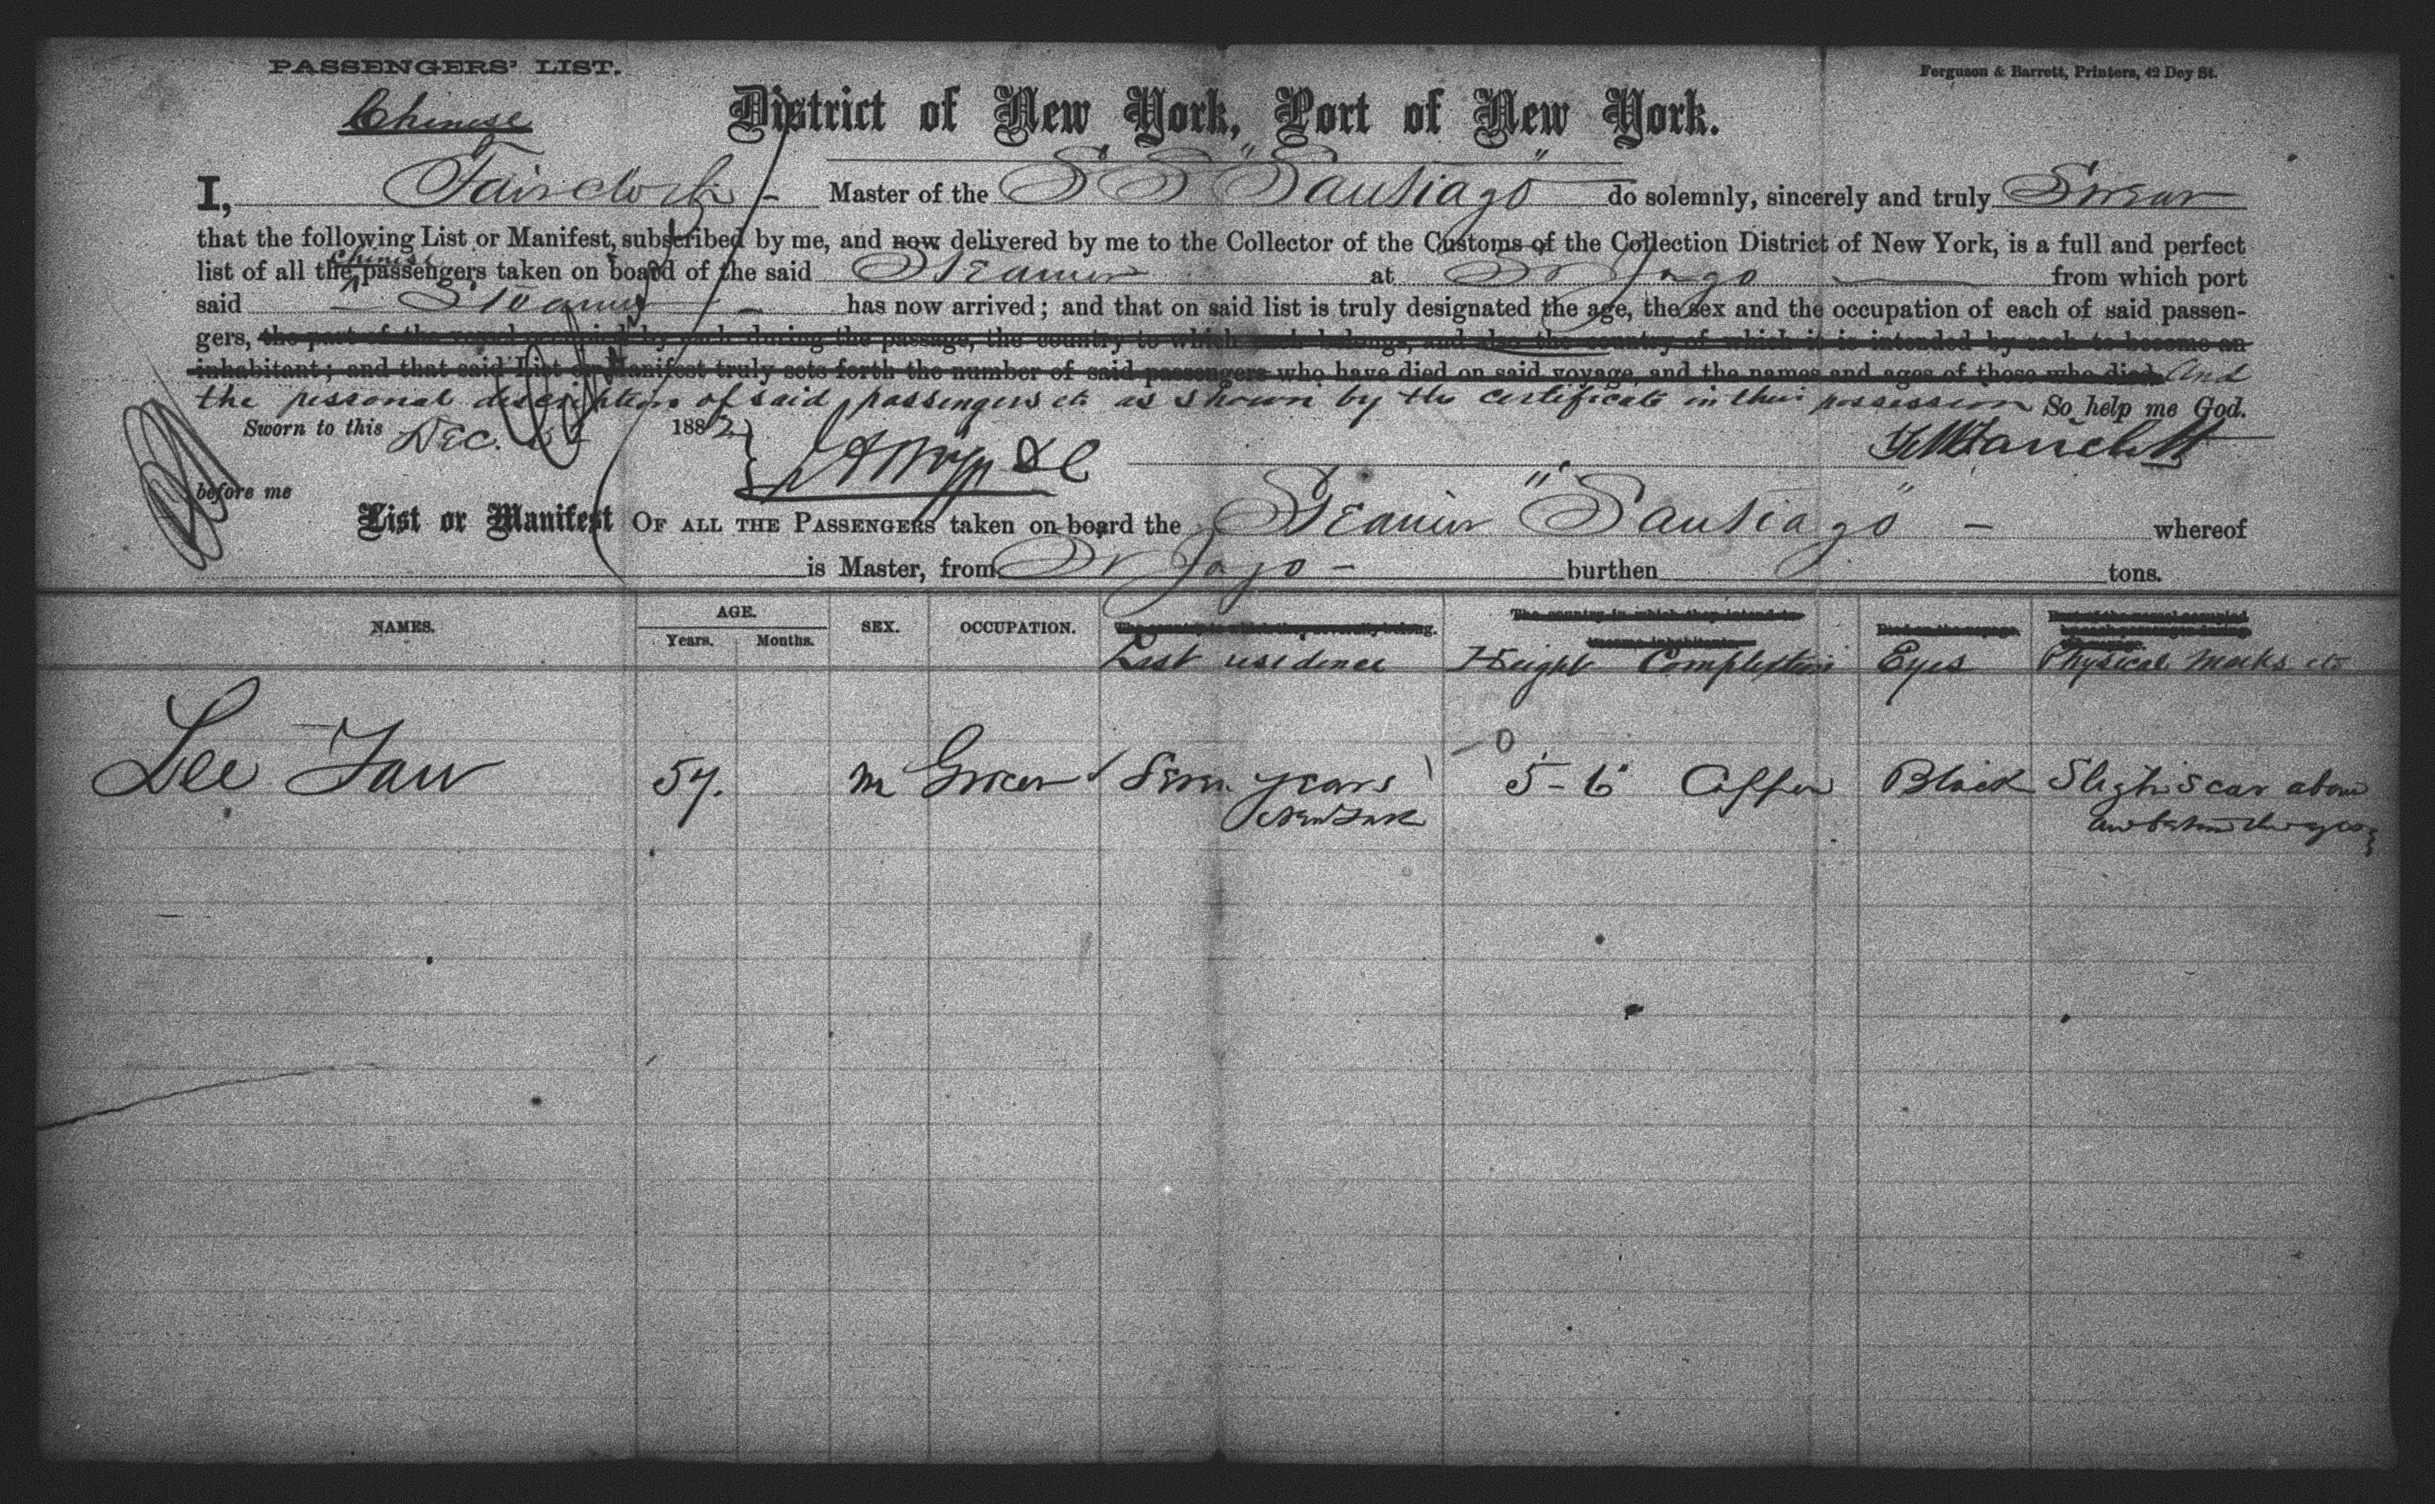 PASSENGERS' LIST.
Ferguson & Barrett, Printers, 42 Dey St.
Chinese
District of New York, Port of New York.
I, Faircloth - Master of the SS "Santiago" do solemnly, sincerely and truly Swear
that the following List or Manifest, subscribed by me, and now delivered by me to the Collector of the Customs of the Collection District of New York, is a full and perfect
chinese
list of all the passengers taken on board of the said Steamer at St Jago from which port
said - Steamer - has now arrived; and that on said list is truly designated the age, the sex and the occupation of each of said passen-
gers, the part of the vessel occupied by each during the passage, the country to which each belongs, and also the country of which it is intended by each to become an
inhabitant; and that said List or Manifest truly sets forth the number of said passengers who have died on said voyage, and the names and ages of those who died. And
the personal description of said passengers etc as shown by the certificate in their possession So help me God.
Sworn to this Dec. 1882
before me
List or Manifest OF ALL THE PASSENGERS taken on board the Steamer "Santiago" - whereof
is Master, from St Jago - burthen tons.
NAMES. AGE. Years. Months. SEX. OCCUPATION. The country to which they severally belong. The country in which they intend to become inhabitants. Died on the voyage. Part of the vessel occupied by each passenger during the voyage.
Last residence Height Complexion Eyes Physical Marks etc
Lee Faw 57. M Grocer Seven years 5-6 Copper Black Slight scar above
New York and between the eyes